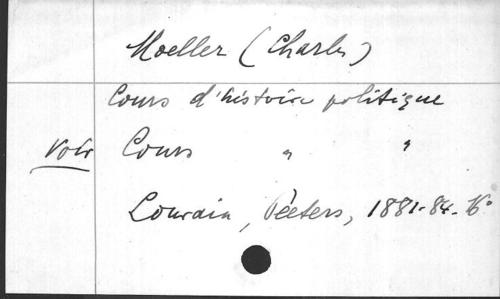 Moeller (Charles)
Cours d'histoire politique
Voir Cours " "
Louvain, Peeters, 1881-84.